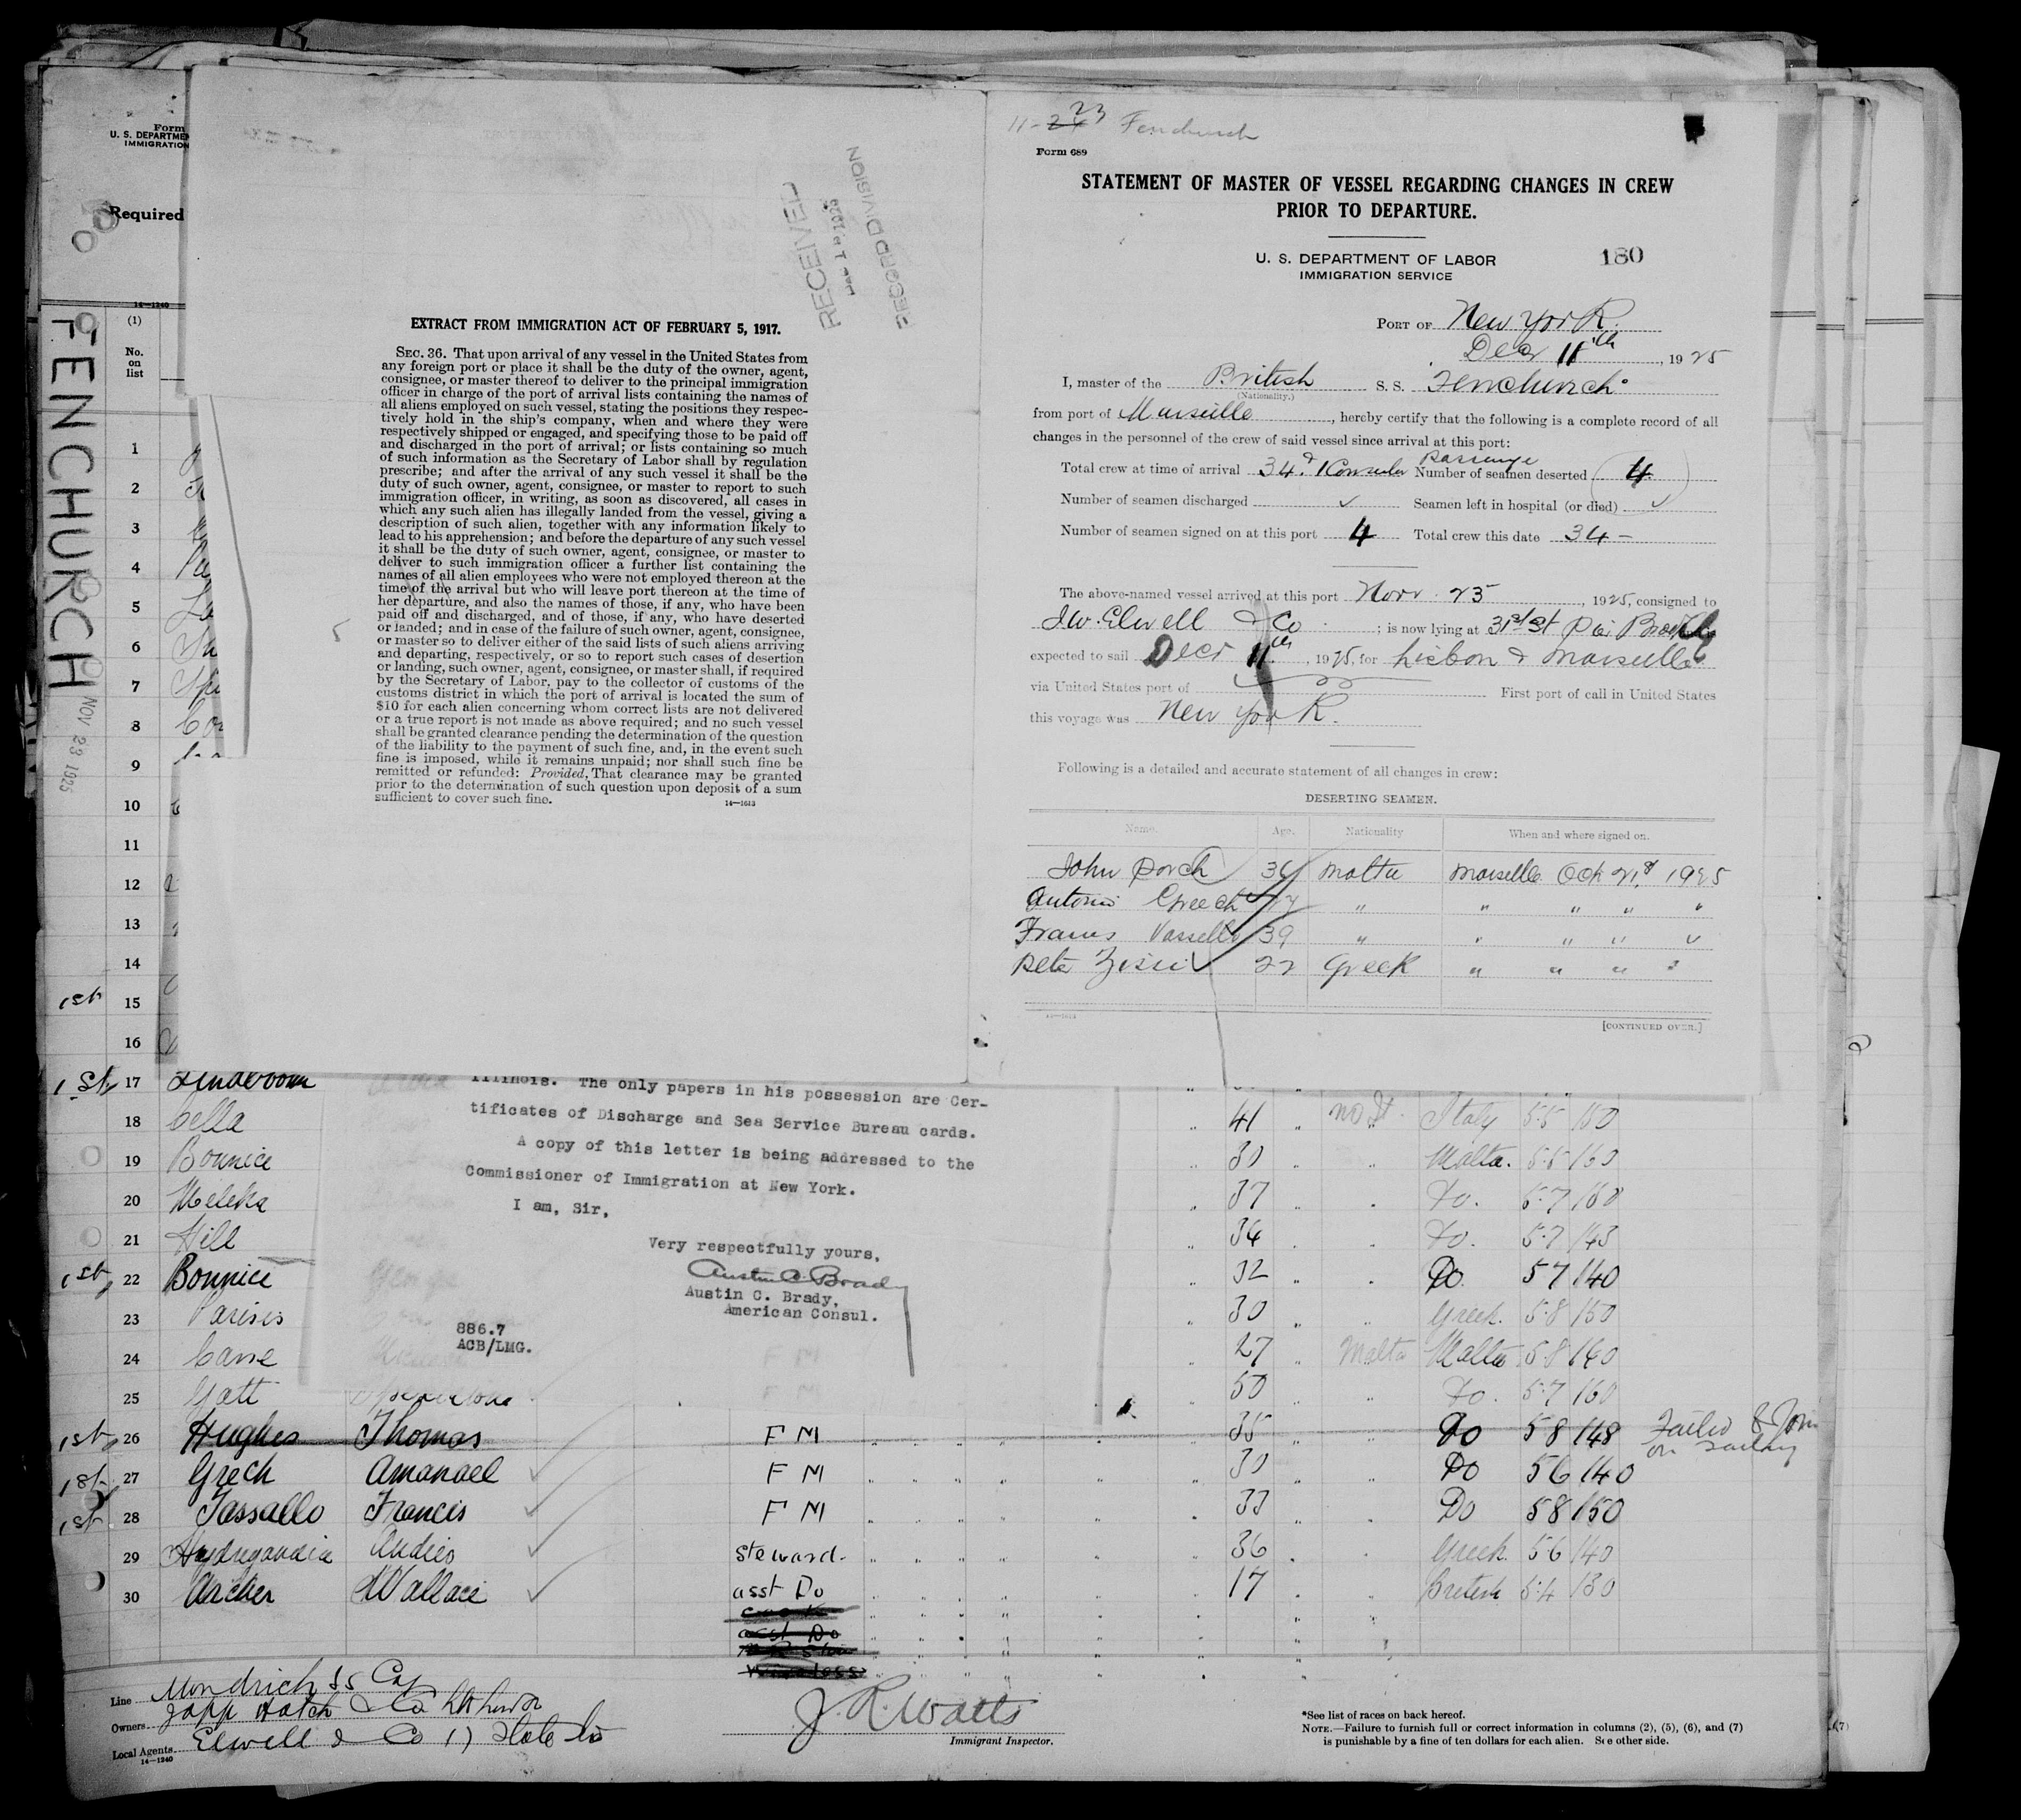 Form
U. S. DEPARTME
IMMIGRATION
Required
14—1240
FENCHURCH
NOV 23 1925
(1)
No.
on
list
1
2
3
4
5
6
7
8
9
10
11
12
13
14
1st 15
16
RECEIVED
RECORD DIVISION
EXTRACT FROM IMMIGRATION ACT OF FEBRUARY 5, 1917.
SEC. 36. That upon arrival of any vessel in the United States from
any foreign port or place it shall be the duty of the owner, agent,
consignee, or master thereof to deliver to the principal immigration
officer in charge of the port of arrival lists containing the names of
all aliens employed on such vessel, stating the positions they respec-
tively hold in the ship's company, when and where they were
respectively shipped or engaged, and specifying those to be paid off
and discharged in the port of arrival; or lists containing so much
of such information as the Secretary of Labor shall by regulation
prescribe; and after the arrival of any such vessel it shall be the
duty of such owner, agent, consignee, or master to report to such
immigration officer, in writing, as soon as discovered, all cases in
which any such alien has illegally landed from the vessel, giving a
description of such alien, together with any information likely to
lead to his apprehension; and before the departure of any such vessel
it shall be the duty of such owner, agent, consignee, or master to
deliver to such immigration officer a further list containing the
names of all alien employees who were not employed thereon at the
time of the arrival but who will leave port thereon at the time of
her departure, and also the names of those, if any, who have been
paid off and discharged, and of those, if any, who have deserted
or landed; and in case of the failure of such owner, agent, consignee,
or master so to deliver either of the said lists of such aliens arriving
and departing, respectively, or so to report such cases of desertion
or landing, such owner, agent, consignee, or master shall, if required
by the Secretary of Labor, pay to the collector of customs of the
customs district in which the port of arrival is located the sum of
$10 for each alien concerning whom correct lists are not delivered
or a true report is not made as above required; and no such vessel
shall be granted clearance pending the determination of the question
of the liability to the payment of such fine, and, in the event such
fine is imposed, while it remains unpaid; nor shall such fine be
remitted or refunded: Provided, That clearance may be granted
prior to the determination of such question upon deposit of a sum
sufficient to cover such fine.
14—1613
11-24 23 Fenchurch
Form 689
STATEMENT OF MASTER OF VESSEL REGARDING CHANGES IN CREW
PRIOR TO DEPARTURE.
U. S. DEPARTMENT OF LABOR
IMMIGRATION SERVICE
180
PORT OF New York
Decr 11th, 1925
I, master of the British S. S. Fenchurch
(Nationality.)
from port of Marseille, hereby certify that the following is a complete record of all
changes in the personnel of the crew of said vessel since arrival at this port:
Total crew at time of arrival 34 & 1 Consular Passenger Number of seamen deserted 4
Number of seamen discharged ✓ Seamen left in hospital (or died) ✓
Number of seamen signed on at this port 4 Total crew this date 34 —
The above-named vessel arrived at this port Nov 23, 1925, consigned to
J.W. Elwell & Co; is now lying at 31st St Pier Brooklyn
expected to sail Decr 11th, 1925, for Lisbon & Marseille
via United States port of First port of call in United States
this voyage was New York.
Following is a detailed and accurate statement of all changes in crew:
DESERTING SEAMEN.
Name. Age. Nationality When and where signed on.
John Porch 36 Malta Marseille Oct 21st 1925
Antonio Greech 17 " " " " "
Francis Vassello 39 " " " " "
Pete 22 Greek " " " "
14—1613
[CONTINUED OVER.]
Illinois. The only papers in his possession are Cer-
tificates of Discharge and Sea Service Bureau cards.
A copy of this letter is being addressed to the
Commissioner of Immigration at New York.
I am, Sir,
Very respectfully yours,
Austin C Brady
Austin C. Brady,
American Consul.
886.7
ACB/LMG.
1st 17 Lindboom
18 Cella 41 Italy 5.5 150
19 Bonnice 30 Malta. 5.5 160
20 Meleka 37 Do. 5.7 160
21 Hill 34 Do. 5.7 143
1st 22 Bonnice 32 Do. 57 140
23 Parisis 30 Greek. 5.8 150
24 27 Malta Malta 5.8 160
25 Gatt 50 Do. 5.7 160
1st 26 Hughes Thomas F M 35 Do 58 148 Failed to Join on Sailing
1st 27 Grech Amanael F M 30 Do 56 140
1st 28 Tassallo Francis F M 33 Do 58 150
29 Andies Steward. 36 Greek. 5.6 140
30 Archer Wallace asst Do 17 British 5.4 130
asst Do
Wireless
Line
Owners
Local Agents Elwell & Co 17 State St
14—1240
J. R. Watts
Immigrant Inspector.
*See list of races on back hereof.
NOTE.—Failure to furnish full or correct information in columns (2), (5), (6), and (7)
is punishable by a fine of ten dollars for each alien. See other side.
(7)